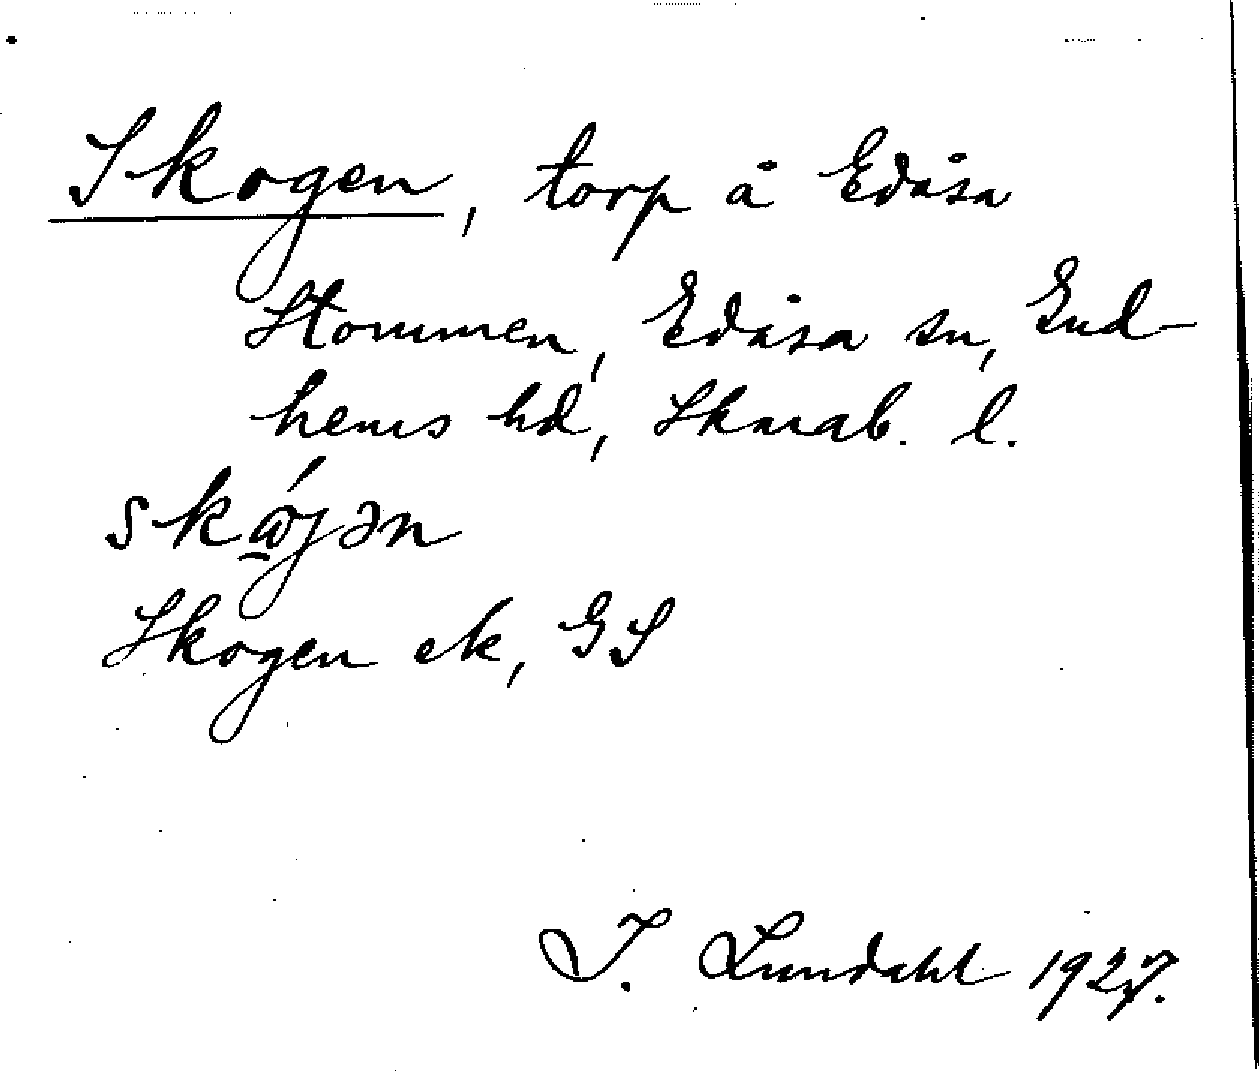 Skogen, torp å Edåsa
Stommen, Edåsa sn, Gud-
hems hd, Skarab. l.
skώ̱jən
Skogen ek, GS
I. Lundahl 1927.